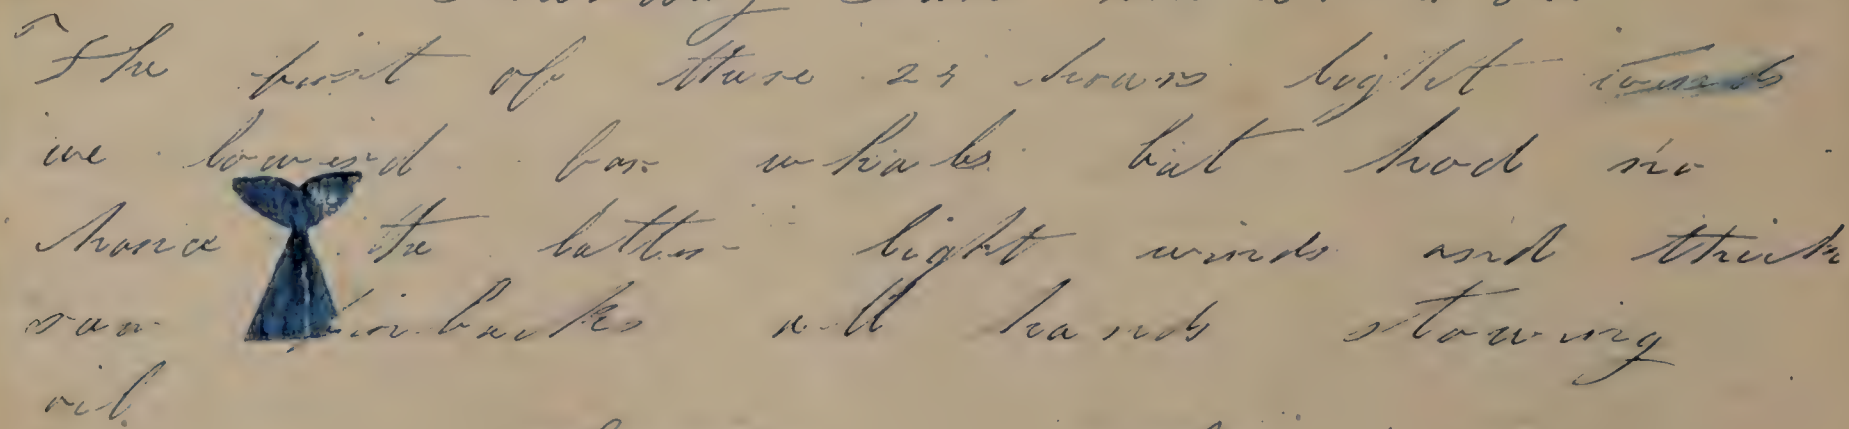 The first of these 24 hours light winds
we lowerd for whales but had no
chance the latter light winds and thick
saw finbacks all hands stowing
oil